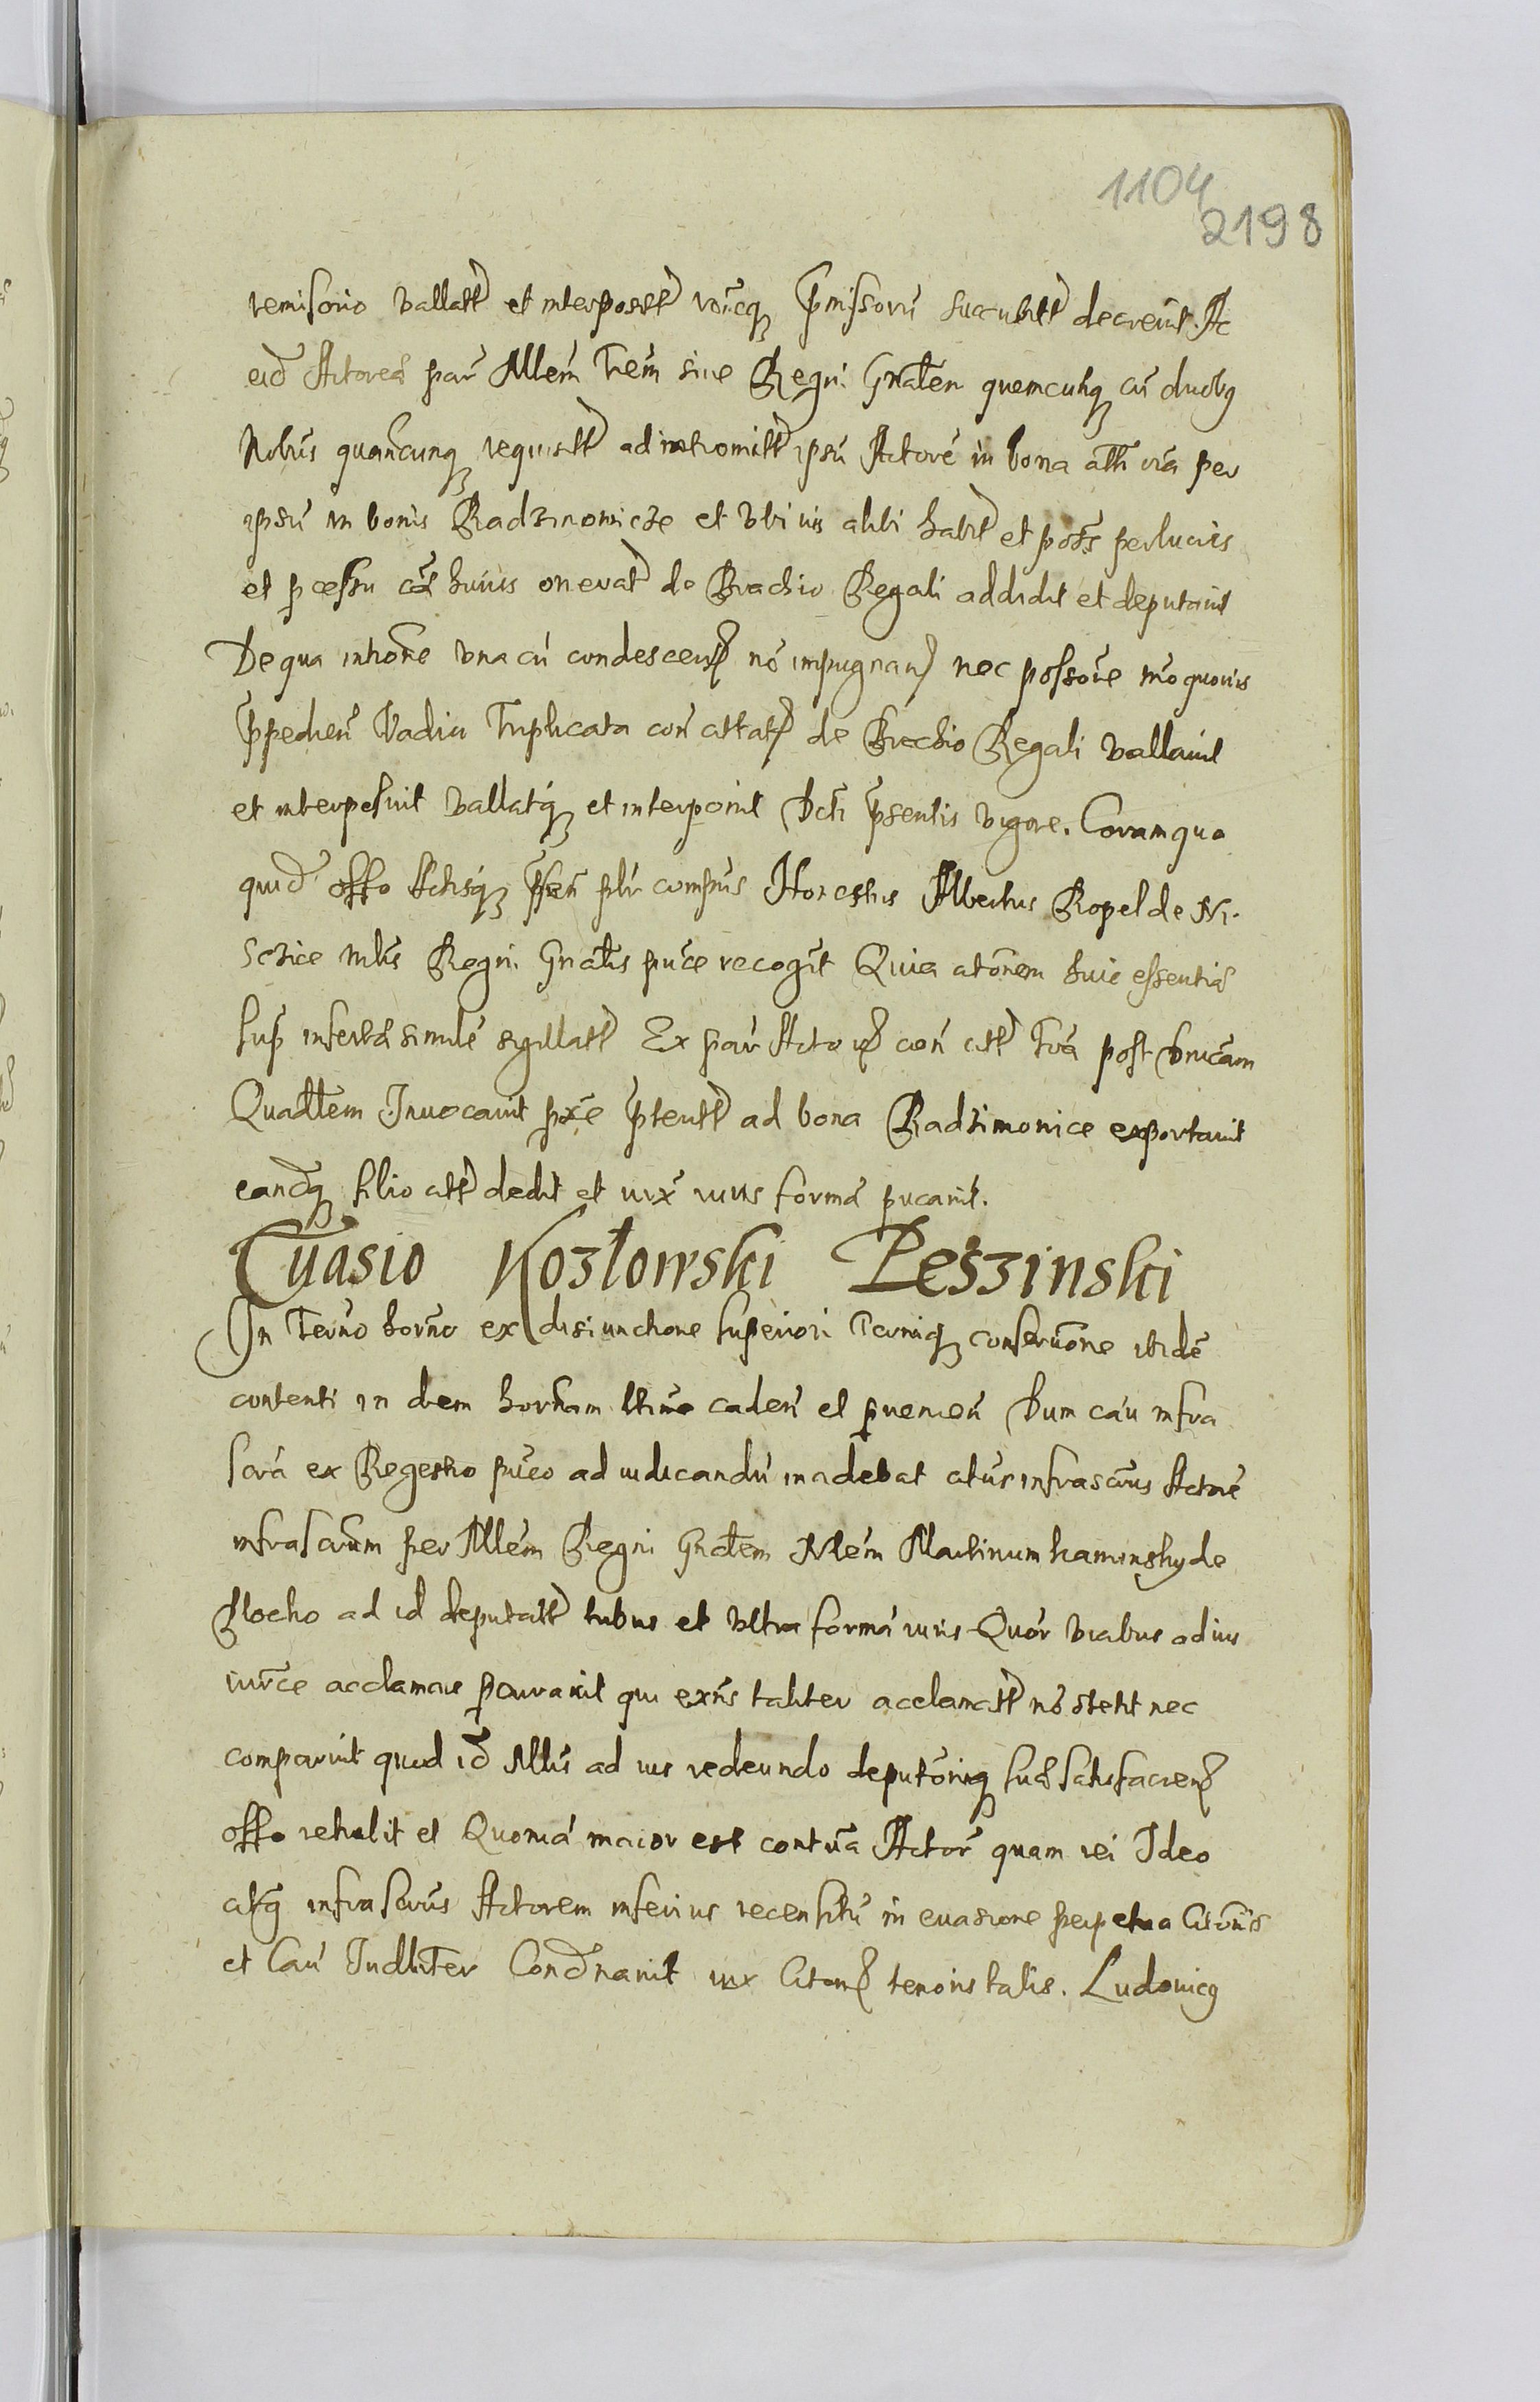 1104
2198
remisorio vallatt et interposit roneq pmissoru succubitt decrevit. Ac
eid Actorea par Mllem Trem sive Regni Gnalem quemcunq cu duobq
Nobus quancunq requisitt ad intromitt ipsu Actore in bona atti oia per
ipsu in bonis Radzinowicze et ubi vis alibi habit et poss perlucris
et pcessu cas huius onerat de Brachio Regali addidit et deputavit
De qua introne una cu condescen no impugnan nec possore mo quovis
ppedien Vadia Triplicata con attat de Brachio Regali vallavit
et interposuit vallatq et interponit Dcti psentis vigore. Coram quo
quid offo Actisq psen plr compns Honestus Albertus Ropel de Ni-
sczice Mlis Regni Gnalis puce recogt Quia atonem huic essentia
sup inserta simile sigillatt Ex par Acto con att Tra post unicam
Quadtem Invocavit pxe ptentt ad bona Radzimowice exportavit
eandq filio att dedit et iux iuris forma pucavit.
Evasio Kozlowski Leszinski
In Termo horno ex disiunctione superiori Termiq conservone ibide
contenti in diem hornam ltimo caden et pvenien Dum cau infra
scra ex Regestro puco ad iudicandu incidebat atus infrascrus Actore
infrascrum per Mllem Regni Gnalem Nlem Martinum kaminsky de
Blocho ad id deputatt tribus et ultra forma iuris Quar viabus ad ius
iurce acclamare pcuravit qui exns taliter acclamatt no stetit nec
comparuit quod id Mllis ad ius redeundo deputoniq sua satisfacien
offo retulit et Quonia maior est contua Actor quam rei Ideo
atq infrascrus Actorem inferius recensitu in evasione perpetua Citonis
et Cau Iudliter Condnavit iux Citone tenoris talis. Ludovicq